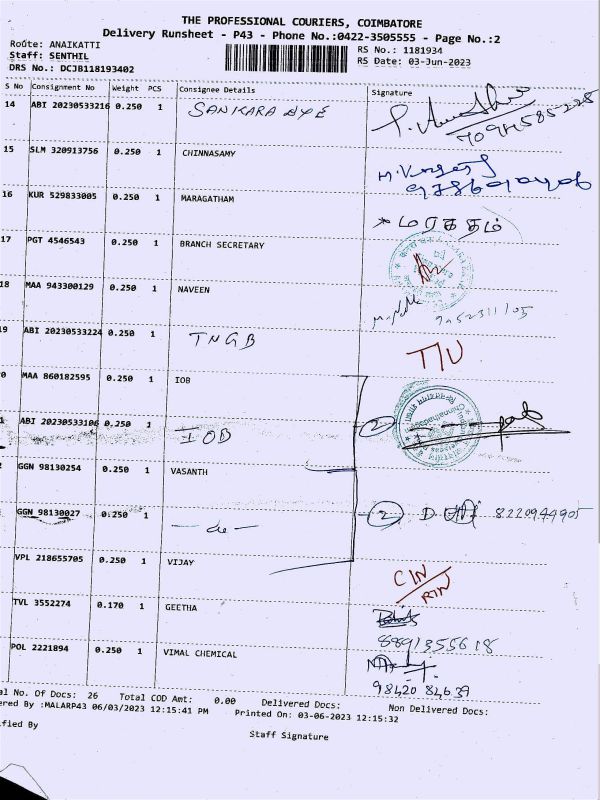 THE PROFESSIONAL COURIERS, COIMBATORE
Delivery Runsheet - P43 - Phone No.:0422-3505555 - Page No.:2
Route: ANAIKATTI
Staff: SENTHIL
DRS No.: DCJB118193402
RS No.: 1181934
RS Date: 03-Jun-2023
S No Consignment No Weight PCS Consignee Details Signature
14 ABI 20230533216 0.250 1 SANKARA EYE
15 SLM 320913756 0.250 1 CHINNASAMY
16 KUR 529833005 0.250 1 MARAGATHAM மரகதம்
17 PGT 4546543 0.250 1 BRANCH SECRETARY
18 MAA 943300129 0.250 1 NAVEEN
19 ABI 20230533224 0.250 1 TNGB T/U
0 MAA 860182595 0.250 1 IOB
1 ABI 20230533106 0.250 1 IOB 2
GGN 98130254 0.250 1 VASANTH
GGN 98130027 0.250 1 — do — 2 D. 8220944905
VPL 218655705 0.250 1 VIJAY
TVL 3552274 0.170 1 GEETHA 8891355618
POL 2221894 0.250 1 VIMAL CHEMICAL 98420 84639
al No. Of Docs: 26 Total COD Amt: 0.00 Delivered Docs: Non Delivered Docs:
ered By :MALARP43 06/03/2023 12:15:41 PM Printed On: 03-06-2023 12:15:32
ified By
Staff Signature